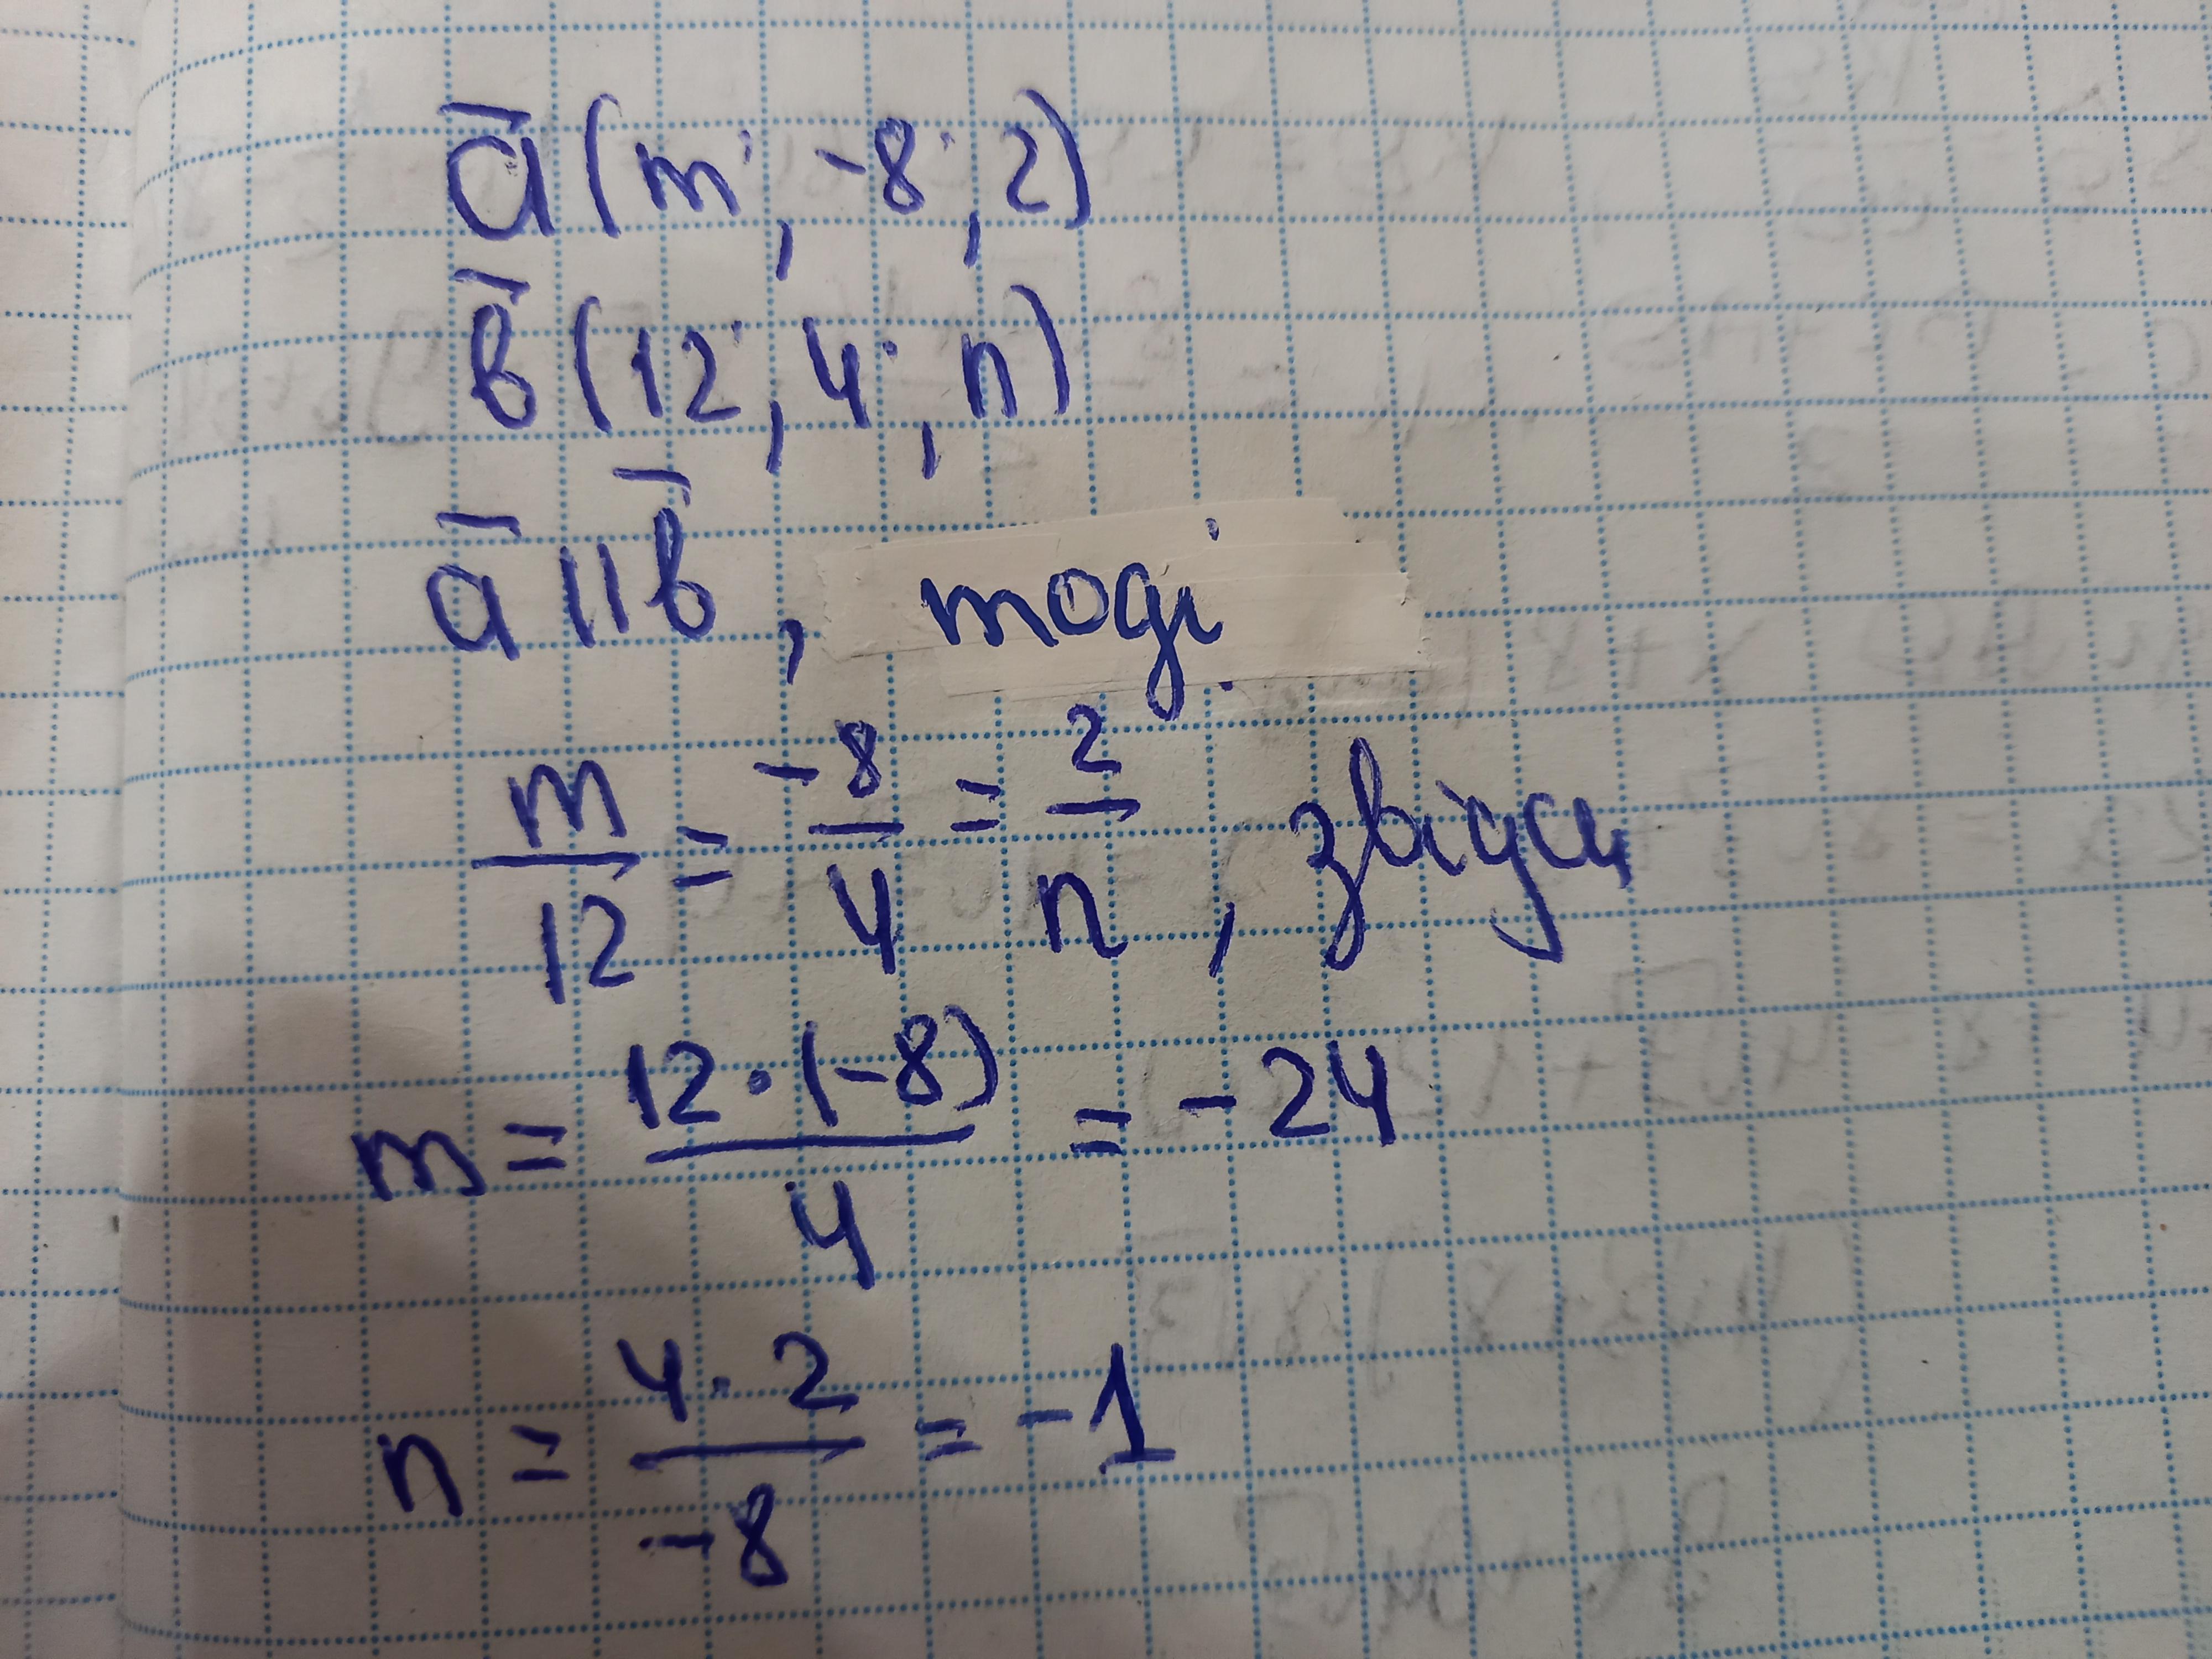 a̅ (m; -8; 2)
b̅ (12; 4; n)
a̅ || b̅, тоді
m/12 = -8/4 = 2/n, звідси
m = 12·(-8)/4 = -24
n = 4·2/-8 = -1